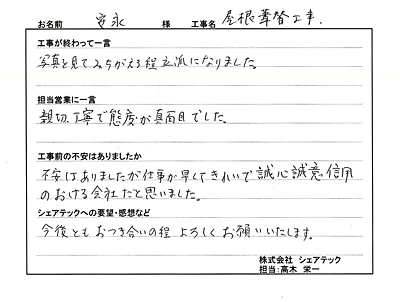 お名前 宮永 様 工事名 屋根葺替工事.
工事が終わって一言
写真と見てみちがえる程立派になりました。
担当営業に一言
親切、丁寧で態度が真面目でした。
工事前の不安はありましたか
不安はありましたが仕事が早くてきれいで誠心誠意、信用
のおける会社だと思いました。
シェアテックへの要望・感想など
今後ともおつき合いの程よろしくお願いいたします。
株式会社 シェアテック
担当:高木 栄一